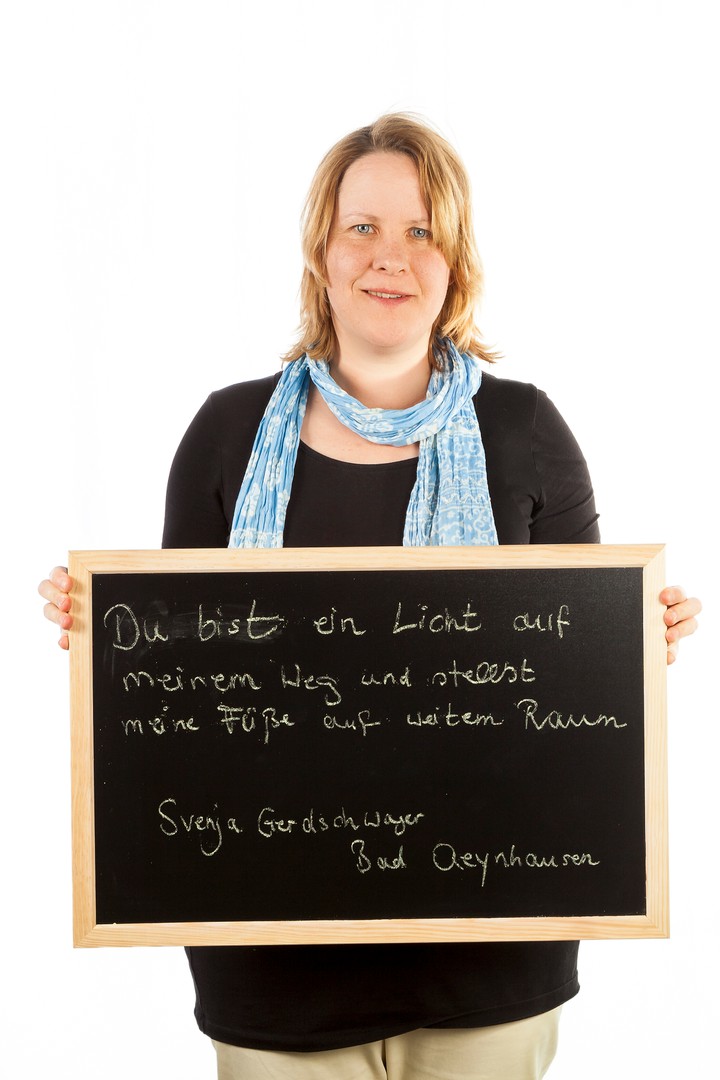 Du bist ein Licht auf
meinem Weg und stellst
meine Füße auf weitem Raum
Svenja Gerdschwager
Bad Oeynhausen